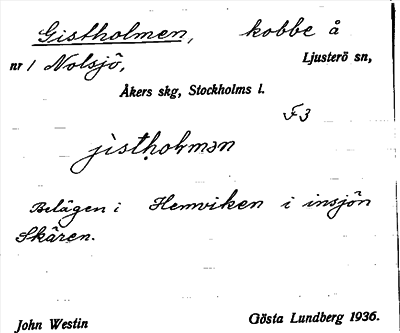 Gistholmen, kobbe å
nr 1 Nolsjö, Ljusterö sn,
Åkers skg, Stockholms l.
F3
jìsthoḷmən
Belägen i Hemviken i insjön
Skären.
John Westin Gösta Lundberg 1936.